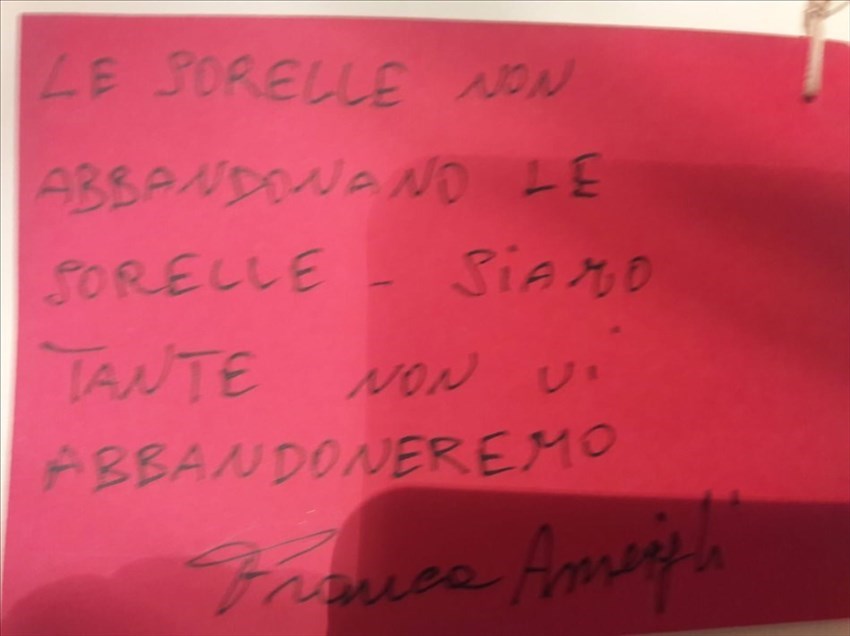 LE SORELLE NON
ABBANDONANO LE
SORELLE - SiAMO
TANTE NON Vi
ABBANDONEREMO
Franca